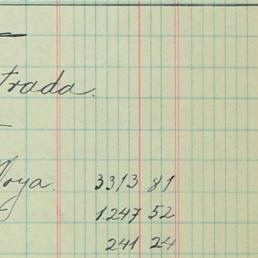 trada.
oya. 3313 81
1.247 52
241 24